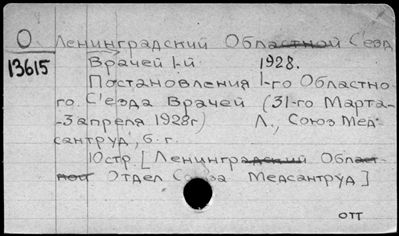 О. Ленинградский Областной С'езд
13615 Врачей 1-й 1928.
Постановления 1-го Областно-
го С'езда Врачей (31-го Марта-
-3 апреля 1928г.) Л., Союз Мед-
сантруд, б.г.
10стр. [Ленинградский Област-
ной Отдел Союза Медсантруд]
отт